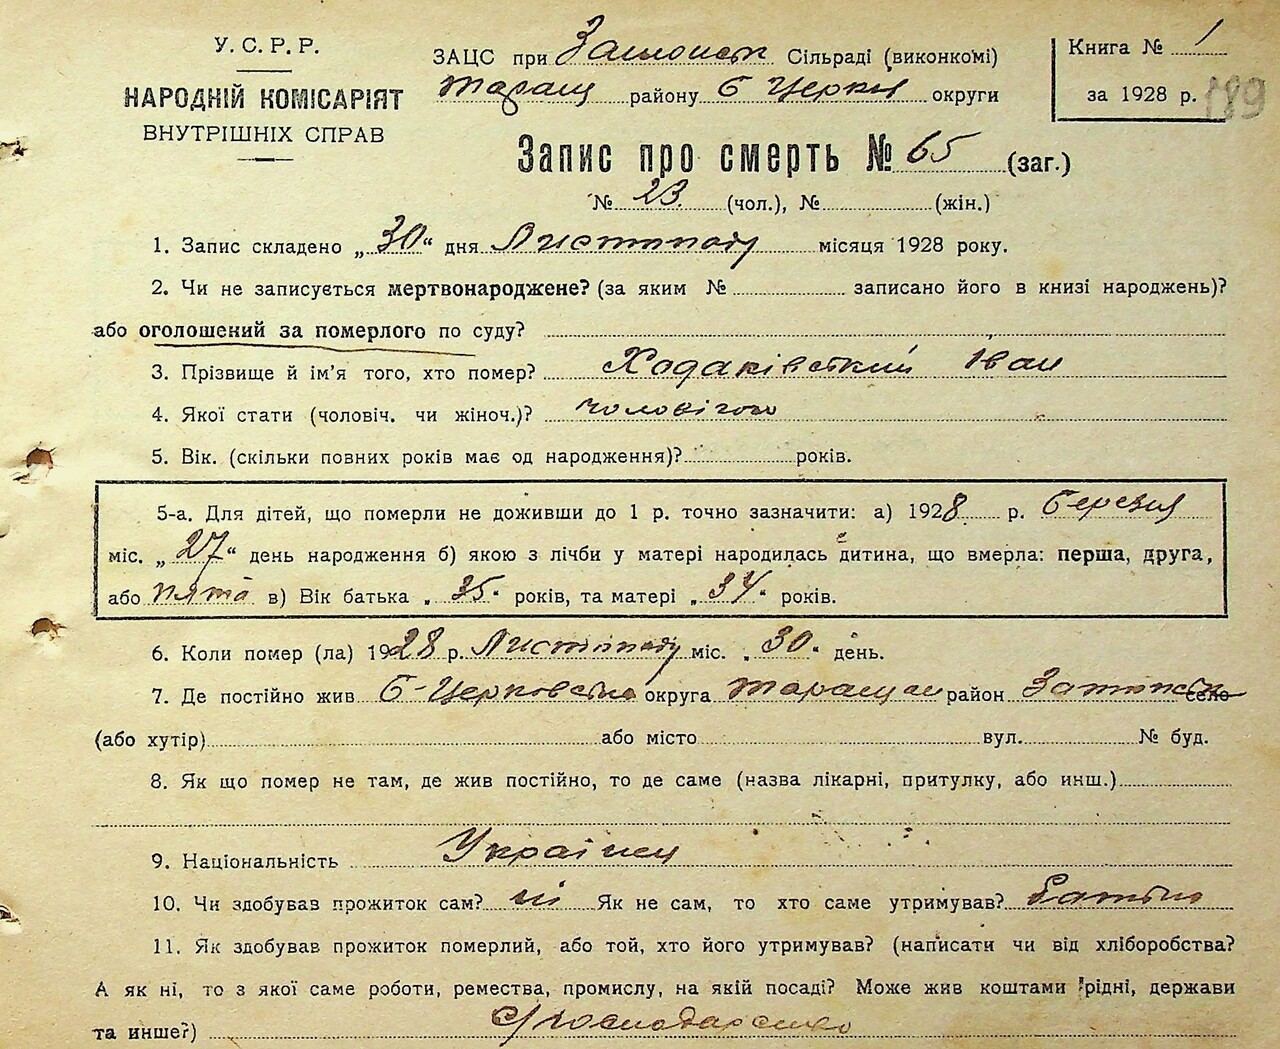 У. С. Р. Р.
НАРОДНІЙ КОМІСАРІЯТ
ВНУТРІШНІХ СПРАВ
ЗАЦС при Сільраді (виконкомі)
Таращ району Б Церкв округи
Книга № 1
за 1928 р. 189
Запис про смерть № 65 (заг.)
№ 23. (чол.), № (жін.)
1. Запис складено „30“ дня Листопаду місяця 1928 року.
2. Чи не записується мертвонароджене? (за яким № записано його в книзі народжень)?
або оголошений за померлого по суду?
3. Прізвище й ім'я того, хто помер? Ходаківський Іван
4. Якої стати (чоловіч. чи жіноч.)? чоловічого
5. Вік. (скільки повних років має од народження)? років.
5-а. Для дітей, що померли не доживши до 1 р. точно зазначити: а) 1928 р. березня
міс. „27“ день народження б) якою з лічби у матері народилась дитина, що вмерла: перша, друга,
або пята в) Вік батька „35“ років, та матері „34“ років.
6. Коли помер (ла) 1928 р. Листопаду міс. „30“ день.
7. Де постійно жив Б-Церковська округа Таращан район село
(або хутір) або місто вул. № буд.
8. Як що помер не там, де жив постійно, то де саме (назва лікарні, притулку, або инш.)
9. Національність Українец
10. Чи здобував прожиток сам? ні Як не сам, то хто саме утримував? Батько
11. Як здобував прожиток померлий, або той, хто його утримував? (написати чи від хліборобства?
А як ні, то з якої саме роботи, ремества, промислу, на якій посаді? Може жив коштами рідні, держави
та инше?)